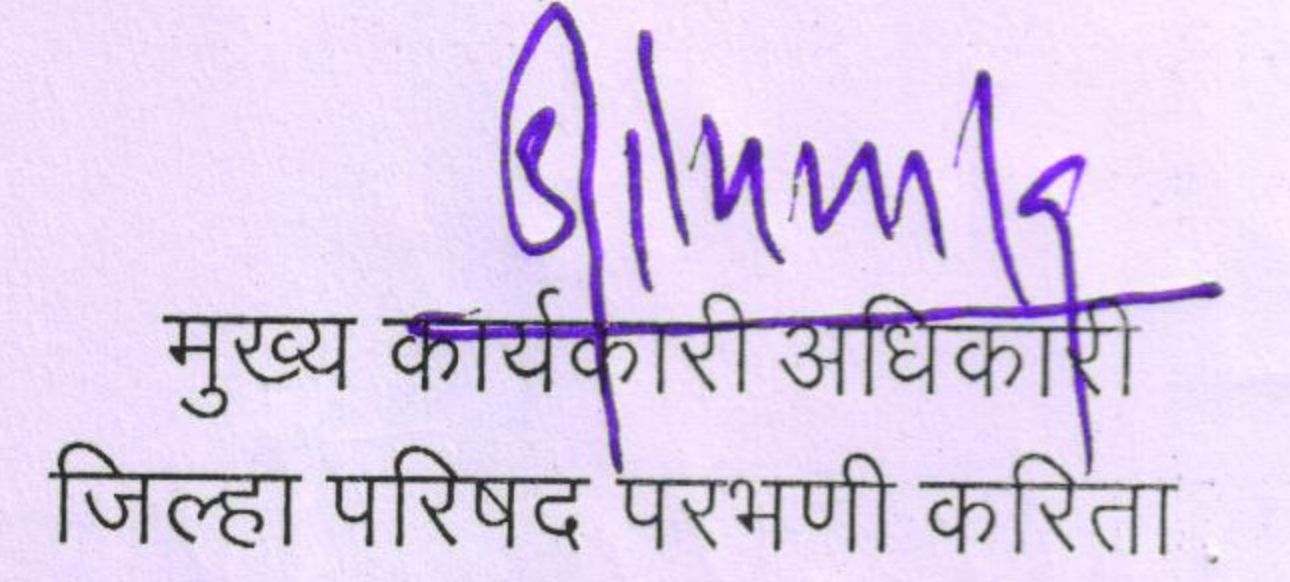 मुख्य कार्यकारी अधिकारी
जिल्हा परिषद परभणी करिता